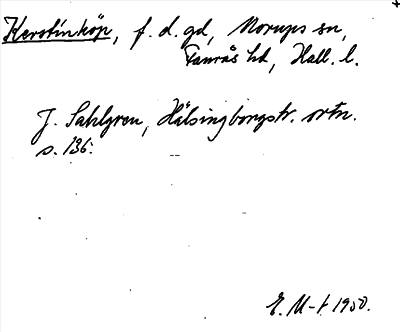 Kerstinköp, f. d. gd, Morups sn,
Faurås hd, Hall. l.
J. Sahlgren, Hälsingborgstr. ortn.
s. 136.
E. M-t 1950.